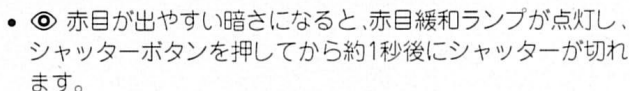 • 👁 赤目が出やすい暗さになると、赤目緩和ランプが点灯し、
シャッターボタンを押してから約1秒後にシャッターが切れ
ます。